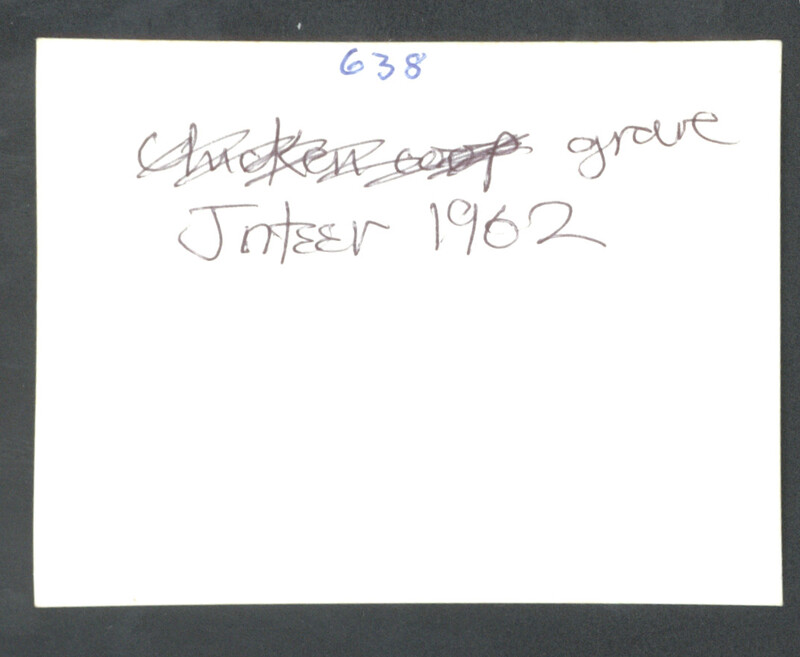 638
chicken coop grave
Jnteer 1962